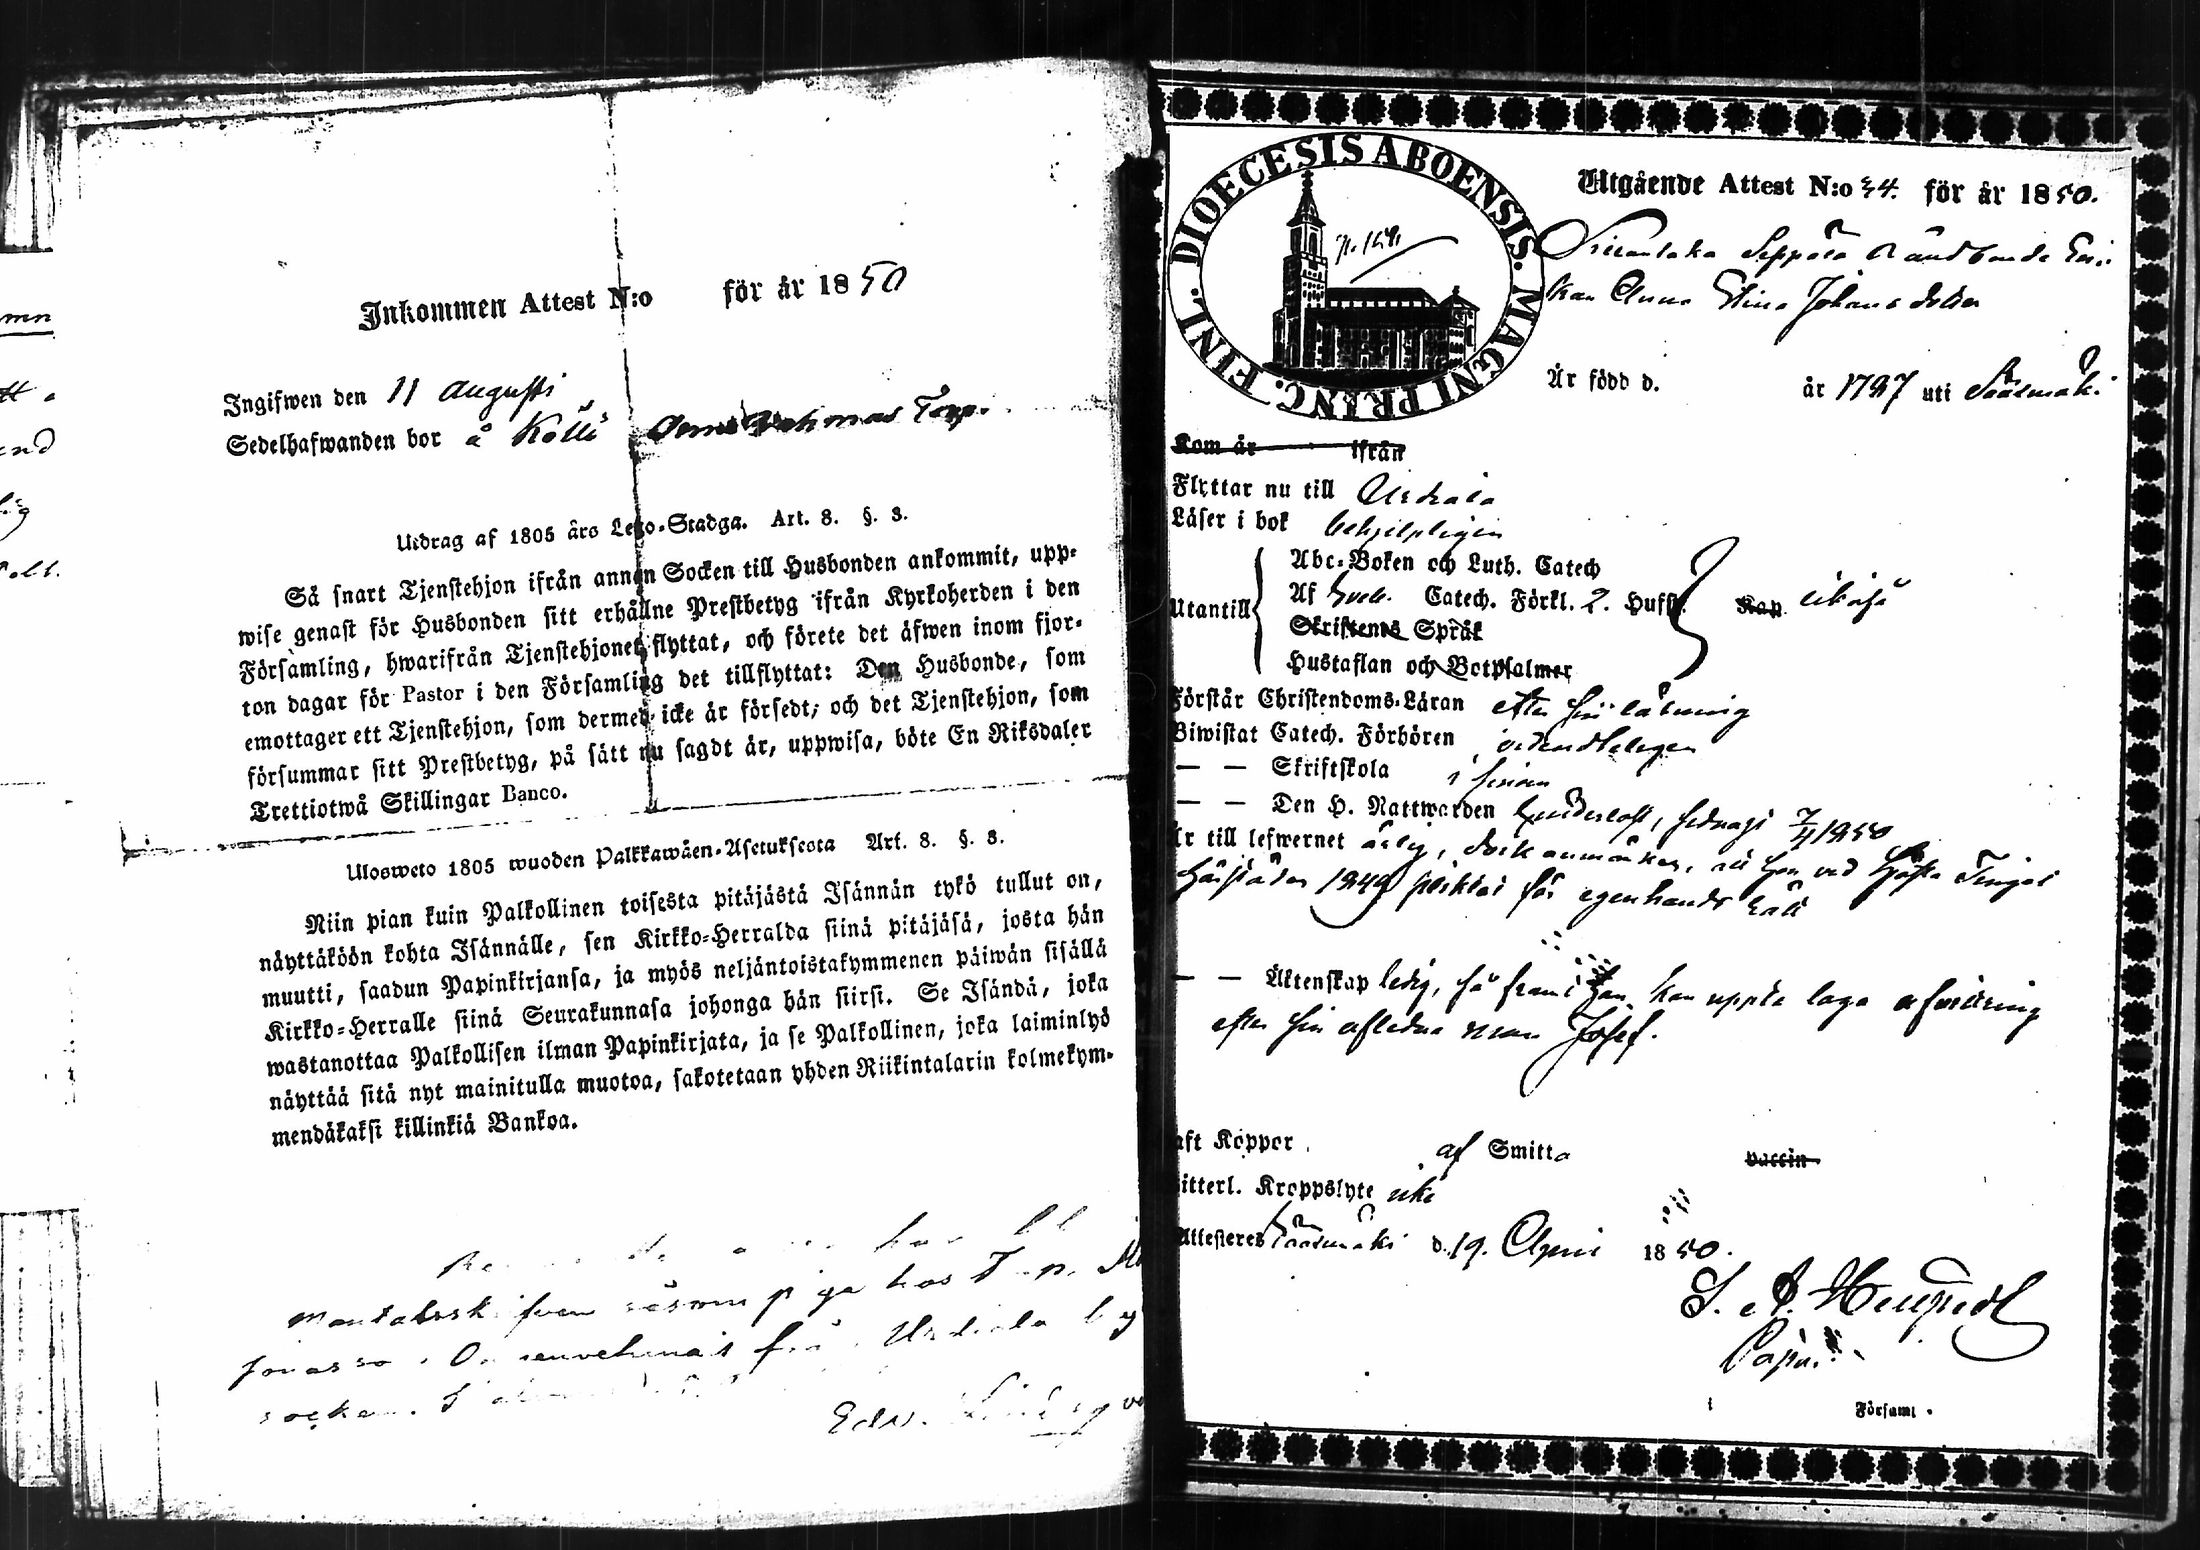 Inkommen Attest N:o för år 1850
Ingifwen den 11 Augusti
Sedelhafwanden bor å Kölli Torp.
Utdrag af 1805 års Lego-Stadga. Art. 8. §. 3.
Så snart Tjenstehjon ifrån annan Socken till Husbonden ankommit, upp-
wise genast för Husbonden sitt erhållne Prestbetyg ifrån Kyrkoherden i den
Församling, hwarifrån Tjenstehjonet flyttat, och förete det äfwen inom fjor-
ton dagar för Pastor i den Församling det tillflyttat: Den Husbonde, som
emottager ett Tjenstehjon, som dermed icke är försedt, och det Tjenstehjon, som
försummar sitt Prestbetyg, på sätt nu sagdt är, uppwisa, böte En Riksdaler
Trettiotwå Skillingar Banco.
Ulosweto 1805 wuoden Palkkawäen-Asetuksesta Art. 8. §. 3.
Niin pian kuin Palkollinen toisesta pitäjästä Isännän tykö tullut on,
näyttäköön kohta Isännälle, sen Kirkko-Herralda siinä pitäjäsä, josta hän
muutti, saadun Papinkirjansa, ja myös neljäntoistakymmenen päiwän sisällä
Kirkko-Herralle siinä Seurakunnasa johonga hän siirsi. Se Isändä, joka
wastanottaa Palkollisen ilman Papinkirjata, ja se Palkollinen, joka laiminlyö
näyttää sitä nyt mainitulla muotoa, sakotetaan yhden Riikintalarin kolmekym-
mendäkaksi killinkiä Bankoa.
hos
socken.
Edv.
DIOECESIS ABOENSIS. MAGNI PRINC. FINL.
Utgående Attest N:o 34. för år 1850.
Seppälä
kan Anna Stina Johansdotter
Är född d. år 1797 uti Sääxmäki
Kom år ifrån
Flyttar nu till Urdiala
Läser i bok behjelpligen
Abc-Boken och Luth. Catech
Utantill Af Sveb. Catech. Förkl. 2. Hufst. Kap. likaså
Skriftenes Språk
Hustaflan och Botpsalmer
Förstår Christendoms-Läran efter sin läsning
Biwistat Catech. Förhören ordentligen
— — Skriftskola i
— — Den H. Nattwarden sednast 7/4 1850
Är till lefwernet ärlig, dock anmärkes, att hon vid Hösta Tinget
1849 pliktat för egenhands rätt
— — Äktenskap ledig, så framt hon kan uppte laga afvittring
efter sin aflidna man Josef.
haft Koppor af Smitta vaccin
Sitterl. Kroppslyte icke
Attesteres Sääxmäki d. 19. April 1850.
Församl.